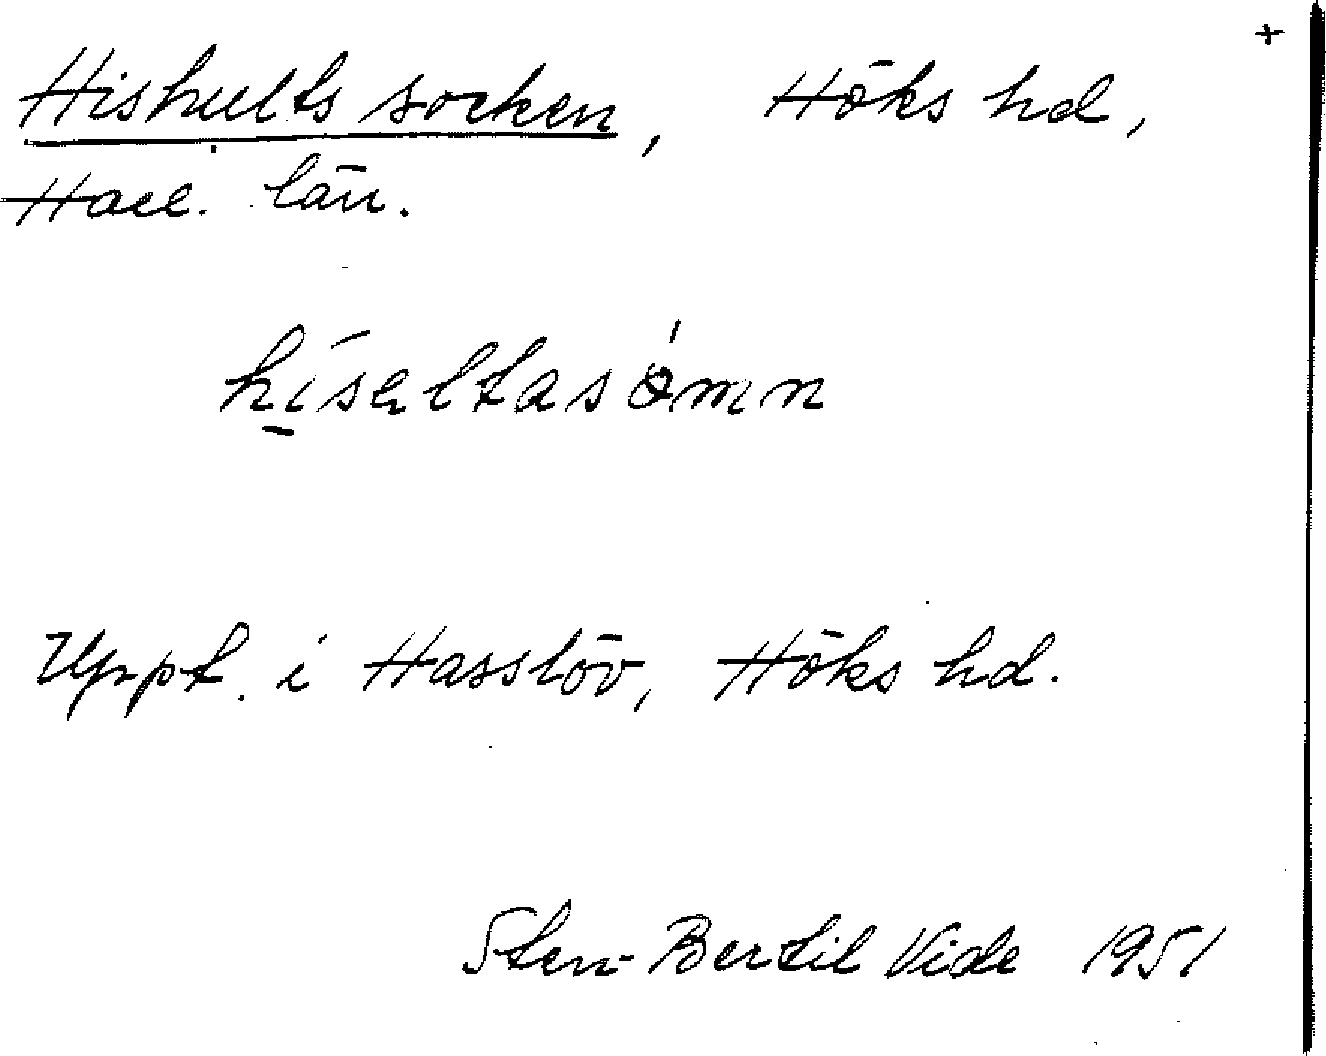 +
Hishults socken, Höks hd,
Hall. län.
híseltasómn
Uppt. i Hasslöv, Höks hd.
Sten-Bertil Vide 1951